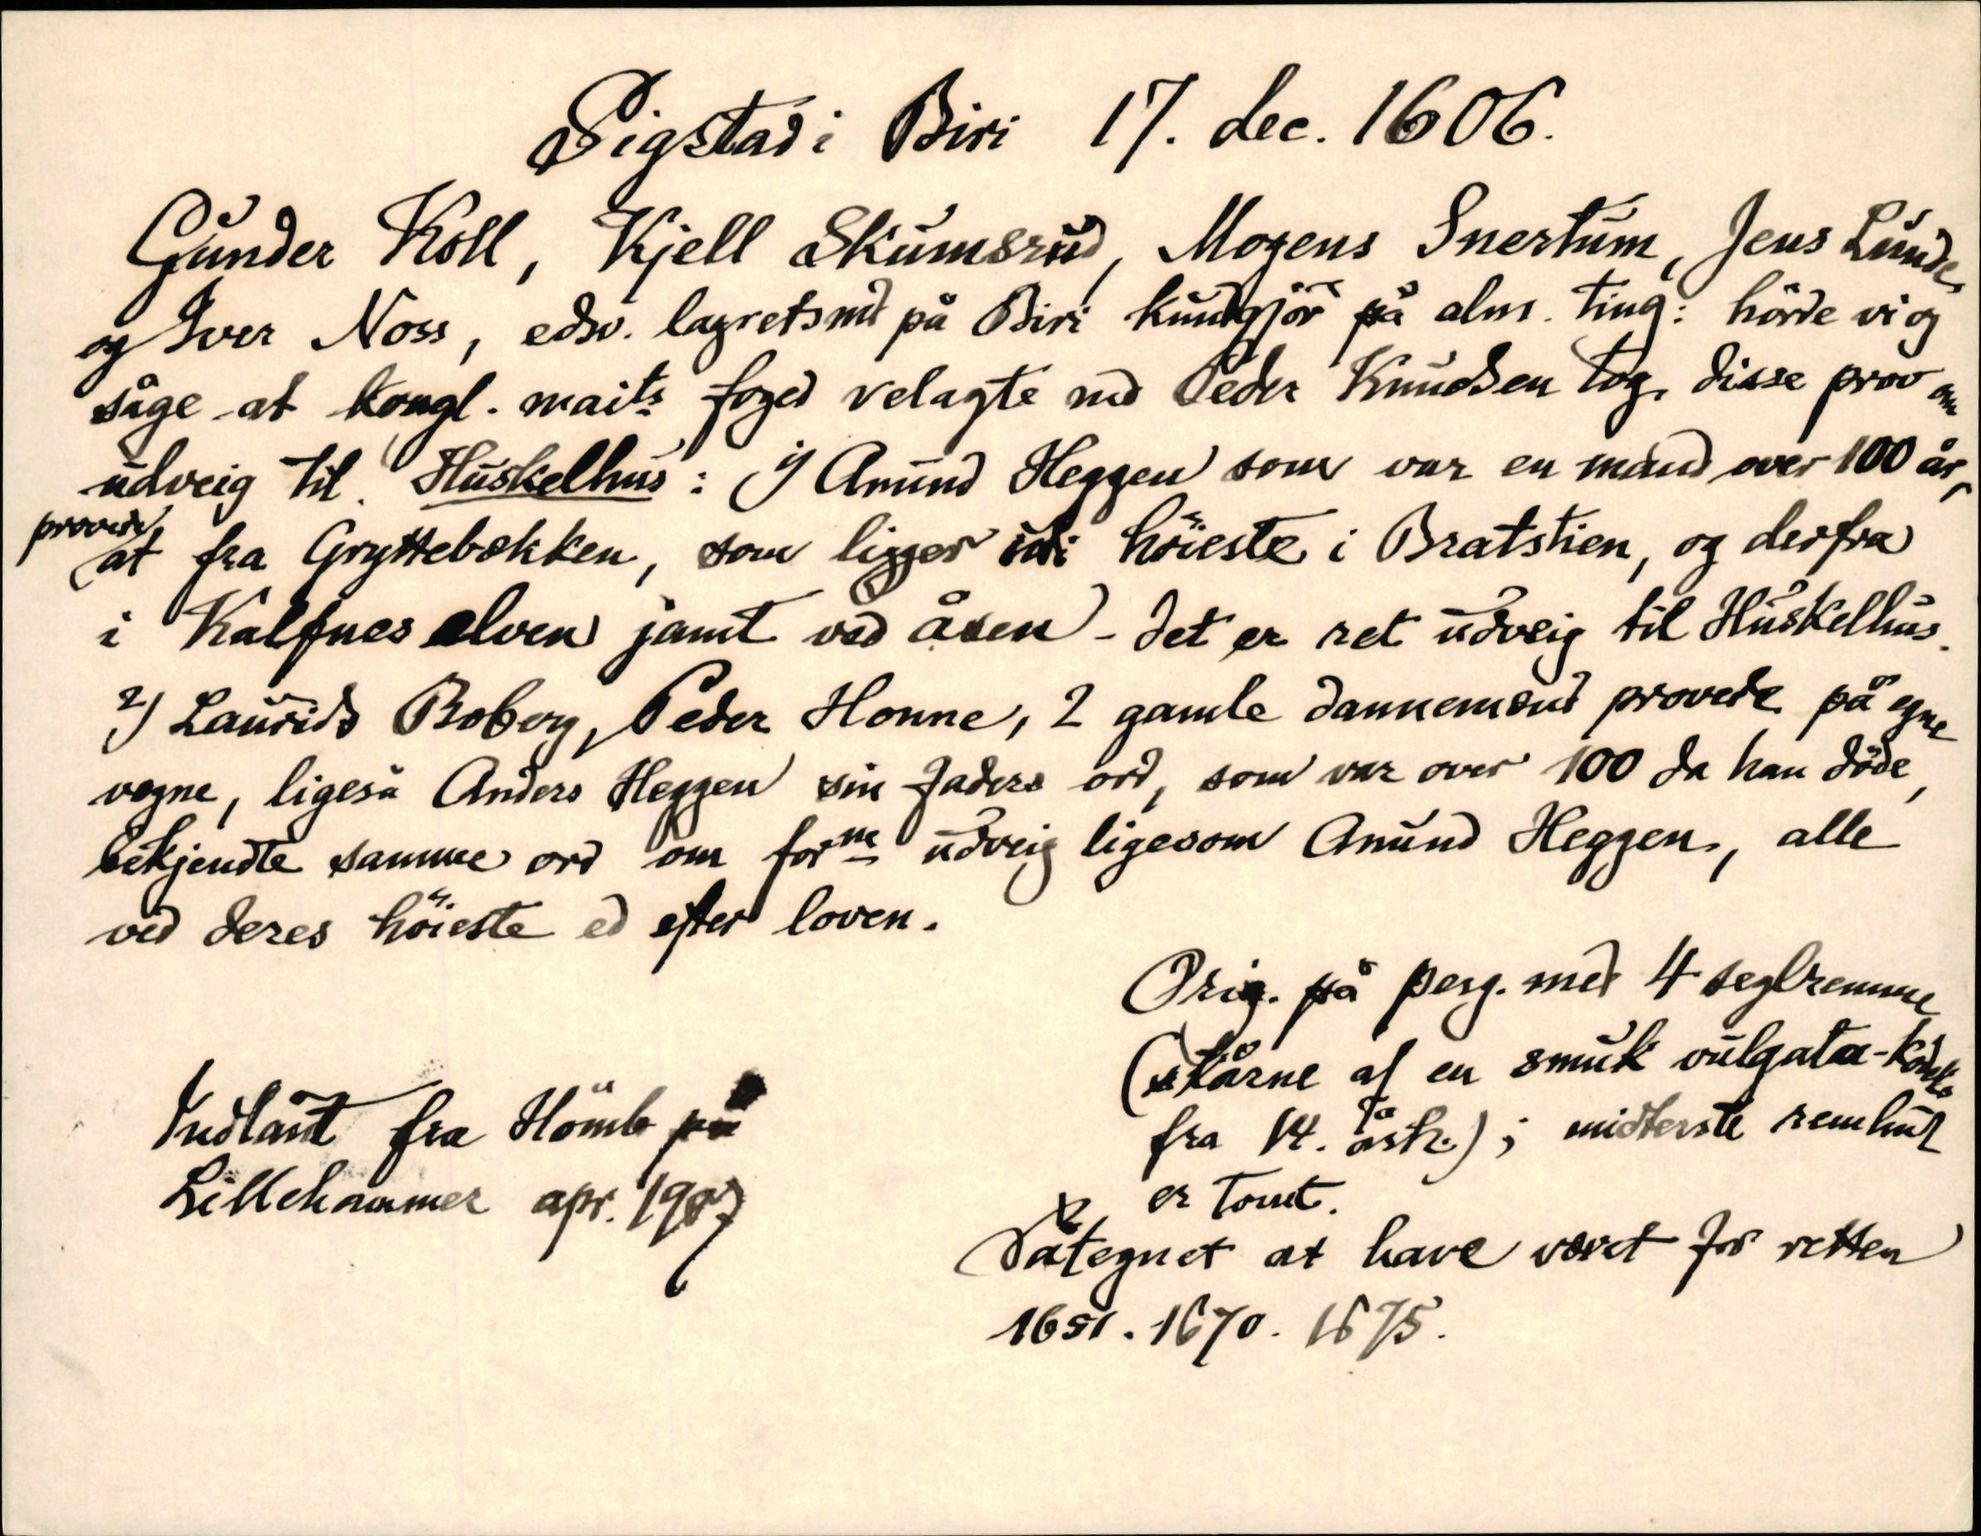 Sigstad i Biri 17. dec. 1606.
Gunder Koll, Kjell Skumsrud, Mogens Snertum, Jens Lunde,
og Iver Noss, edsv. lagretsmd på Biri kundgjör på alm. ting: hörde vi og
såge at kongl. maits foged velagte md Peder Knudsen tog disse prov om
udveig til Huskelhus: 1) Amund Heggen som var en mand over 100 år,
provede
at fra Gryttebækken, som ligger i höieste i Bratstien, og derfra
i Kalfnes elven jamt ved åsen - det er ret udveig til Huskelhus.
2) Laurids Boberg, Peder Honne, 2 gamle dannemænd provede på egne
vegne, ligeså Anders Heggen sin faders ord, som var over 100 da han döde,
bekjendte samme ord om forne udveig ligesom Amund Heggen, alle
ved deres höieste ed efter loven.
Orig. på perg. med 4 seglremme
(skårne af en smuk vulgata-kodeks
fra 14. årh.); midterste remhul
er tomt.
Påtegnet at have været for retten
1651. 1670. 1675.
Indlånt fra Hömb på
Lillehammer apr. 1907